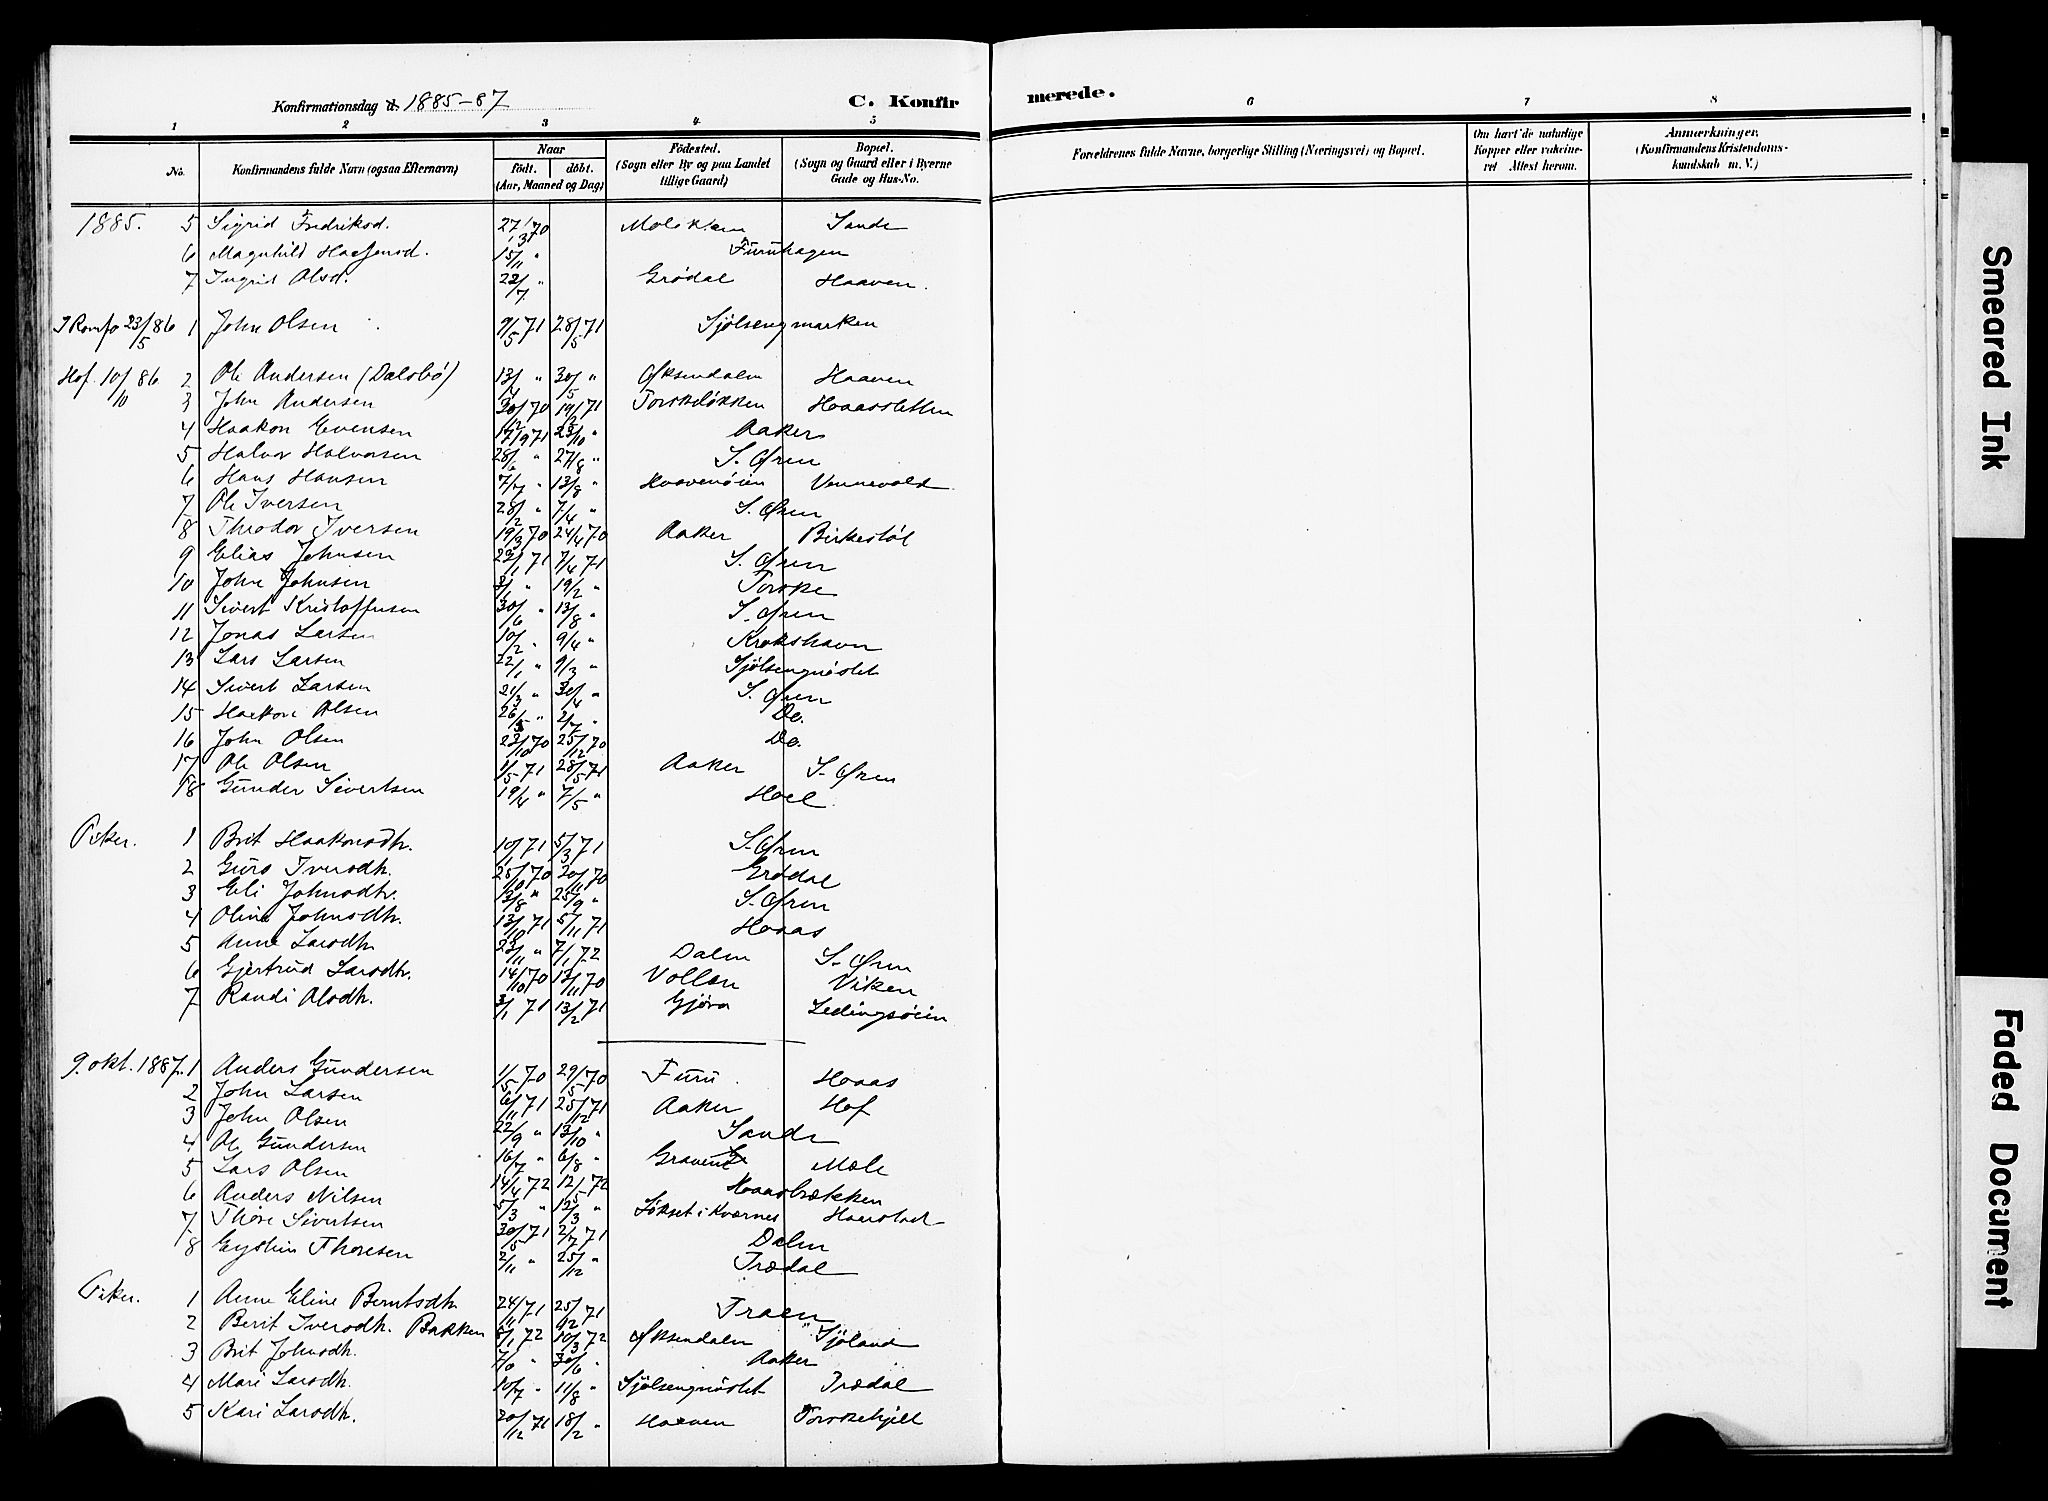 Konfirmationsdag d. 1885-87
C. Konfirmerede.
1 2 3 4 5 6 7 8
No. Konfirmandens fulde Navn (ogsaa Efternavn) Naar født. døbt. (Aar, Maaned og Dag) Fødested. (Sogn eller By og paa Landet tillige Gaard) Bopæl. (Sogn og Gaard eller i Byerne Gade og Hus-No. Forældrenes fulde Navne, borgerlige Stilling (Næringsvei) og Bopæl. Om havt de naturlige Kopper eller vakcineret Attest herom. Anmærkninger. (Konfirmandens Kristendomskundskab m. V.)
1885. 5 Sigrid Fredriksd. 27/3 70 Sande
6 Magnhild 15/11 " Furuhagen
7 Ingrid Olsd. 22/7 " Grødal Haaven.
I Romfo 23/5 86 1 John Olsen 9/5 71 28/5 71 Sjølsengmarken
Hof. 10/10 86 2 Ole Andersen (Dalsbø) 30/5 " Øksendalen Haaven
3 John Andersen 30/12 70 19/2 71 Torskeløkken Haasletten
4 Haakon Evensen 17/9 71 22/10 " Aaker
5 Halvor Halvorsen 28/6 " 27/8 " S. Øren
6 Hans Hansen 7/7 " 13/8 " Haavenøien Vennevold
7 Ole Iversen 28/2 " 7/4 " S. Øren
8 Theodor Iversen 19/3 70 24/4 70 Aaker Birkestøl
9 Elias Johnsen 23/1 71 7/4 71 S. Øren
10 John Johnsen 3/1 " 19/2 " Torske
11 Sivert Kristoffersen 30/6 " 13/8 " S. Øren
12 Jonas Larsen 10/2 " 9/4 " Krokshavn
13 Lars Larsen 22/1 " 9/3 " Sjølsengnøstet
14 Sivert Larsen 21/3 " 30/4 " S. Øren
15 Haakon Olsen 26/5 " 2/7 " Do.
16 John Olsen 23/10 70 25/12 70 Do.
17 Ole Olsen 1/5 71 28/5 71 Aaker S. Øren
18 Gunder Sivertsen 19/4 " 7/5 " Hoel
Piker. 1 Brit Haakonsdtr. 10/1 71 5/3 71 S. Øren
2 Guro Iversdtr. 25/10 70 20/11 70 Grødal
3 Eli Johnsdtr. 13/8 " 25/9 " S. Øren
4 Oline Johnsdtr. 13/10 71 5/11 71 Haas
5 Anne Larsdtr. 23/11 " 7/1 72 Dalen S. Øren
6 Gjertrud Larsdtr. 14/10 70 13/11 70 Vollan Viken
7 Randi Olsdtr. 3/1 71 13/2 71 Gjøra Ledingsøien
9. okt. 1887. 1 Anders Gundersen 1/5 70 29/5 70 Furu Haas
2 John Larsen 6/11 71 25/12 71 Aaker Hof
3 John Olsen 22/9 " 13/10 " Sande
4 Ole Gundersen 16/7 " 6/8 " Mæle
5 Lars Olsen 14/4 72 12/5 72 Haasbrækken
6 Anders Nilsen 5/3 " 12/3 " Søkset i Kvernes Haarstad
7 Thore Sivertsen 30/5 71 2/7 71 Dalen
8 Eystein Thoresen 2/11 " 25/12 " Trædal
Piker. 1 Anne Eline Berntsdtr. 24/11 71 25/12 71 Traen
2 Berit Iversdtr. Bakken 5/1 72 10/3 72 Øksendalen Sjøland
3 Brit Johnsdtr. 30/6 " Aaker
4 Mari Larsdtr. 10/7 " 11/8 " Sjølsengnøstet Trædal
5 Kari Larsdtr. 20/12 71 18/2 " Haaven Torskehjell
Smeared Ink
Faded Document